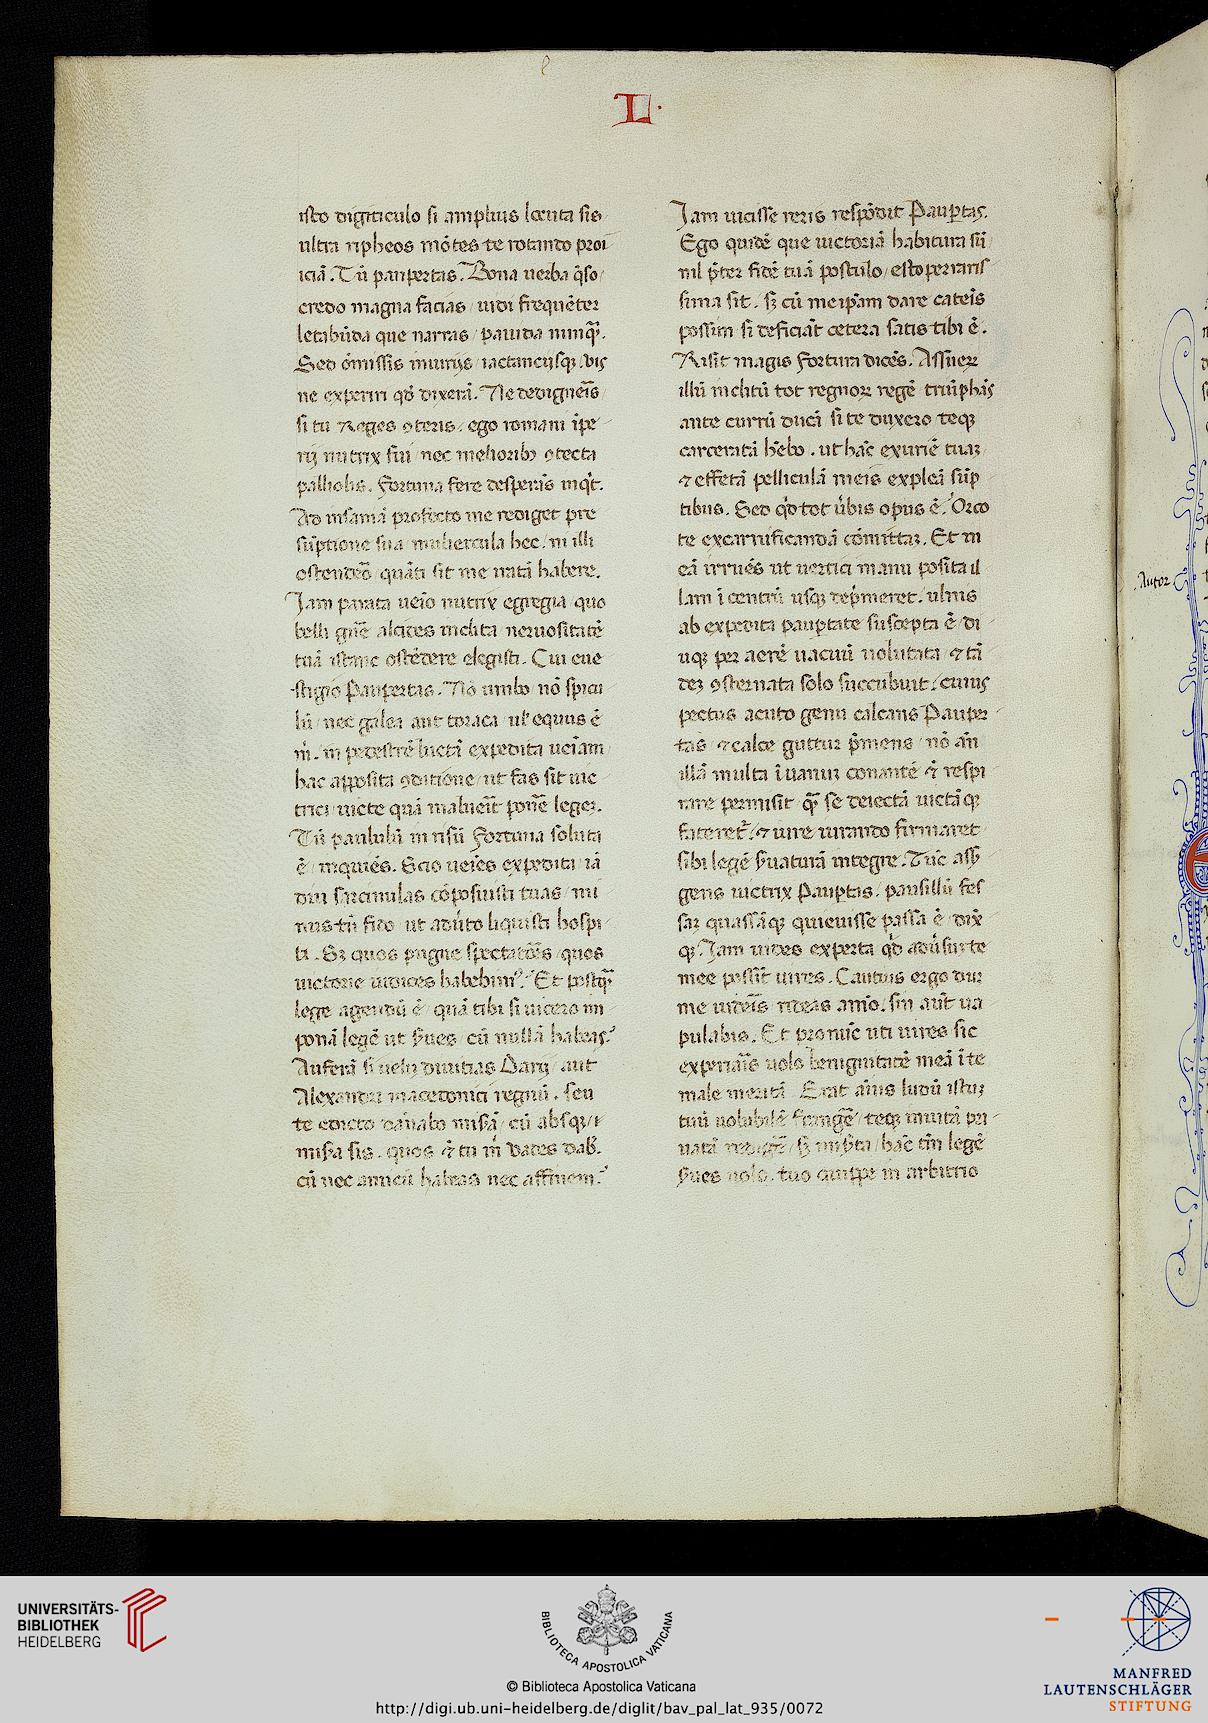 L.
isto digiticulo si amplius locuta sis
ultra ripheos mōtes te rotando proi
iciā. Tū paupertas. Bona uerba q̄so
credo magna facias / uidi frequēter
letabūda que narras / pauida nunq̄.
Sed ōmissis iniurijs / iactanciisq; uis
ne experiri qd dixerā. Ne dedigneris
si tu Reges ꝯteris. ego romani īpe
rij nutrix fui / nec melioribꝰ ꝯtecta
palliolis. Fortuna fere desperās inqt.
Ad insaniā profecto me rediget pre
sūptione sua muliercula hec. ni illi
ostendero / quāti sit me iratā habere.
Jam parata ueīo nutrix egregia / quo
belli gn̄e alcides inclita neruositatē
tuā istinc ostēdere elegisti. Cui eue
stigio Paupertas. Nō umbo / nō spicu
lū / nec galea aut toraca / ul' equus ē
m̄. in pedestrē luctā expedita ueīam
hac apposita ꝯditione / ut fas sit uic
trici / uicte quā maluerit ponē legeꝫ.
Tū paululū in risū Fortuna soluta
ē / inquiēs. Scio ueīes expedita / iā
diu sarcinulas cōposuisti tuas / mi
nus tn̄ fido ut adūto liquisti hospi
ti. Sꝫ quos pugne spectatōes / quos
uictorie iudices habebimꝰ? Et postq̄
lege agendū ē / quā tibi si uicero im
ponā legē ut s̄ues / cū nullā habeas?
Auferā si uelis diuitias Darij aut
Alexandri macedonici regnū. seu
te edicto dānabo misʳā / cū absq; /
misʳa sis. quos & tu m̄ uades dabˢ.
cū nec amicū habeas nec affinem?
Jam uicisse reris respōdit Paup̄tas.
Ego quidē que uictoriā habitura sū
nil p̄ter fidē tuā postulo / esto periuris
sima sit. sꝫ cū meip̄am dare cateīs
possim si deficiāt cetera satis tibi ē.
Risit magis Fortuna dicēs. Assuerꝫ
illū inclitū tot regnoꝝ regē triūphās
ante currū ducā si te duxero teq;
carceratā h̄ebo. ut hāc exuriē tuaꝫ
& effetā pelliculā meis expleā sūp
tibus. Sed qd tot ūbis opus ē? Orco
te excarnificandā cōmittaꝫ. Et in
eā irruēs ut uertici manu posita il
lam ī centrū usq; dep̄meret. ulnis
ab expedita paup̄tate suscepta ē / di
uq; per aerē uacuū uolutata / & tā
deꝫ ꝯsternata solo succubuit. cuius
pectus acuto genu calcans Pauper
tas & calce guttur p̄mens / nō an̄
illā multa ī uanū conantē & respi
rare permisit q̄ se deiectā uictāq;
fateret̄. & iure iurando firmaret
sibi legē s̄uaturā integre. Tūc assˢ
gens uictrix Paup̄tas. pausillū fes
saꝫ quassāq; quieuisse passa ē / dix̄
q;. Jam uides experta qd adūsū te
mee possīt uires. Cautius ergo dur
me uideīs rideas amō. sin aūt ua
pulabis. Et pro nūc uti uires sic
experiaīs uolo benignitatē meā ī te
male meritā. Erat aīus ludū istuꝫ
tuū uolubilē frangē / teq; inuitā pri
uatā redigē / sꝫ misʳta / hāc tn̄ legē
s̄ues uolo. tuo quippe in arbitrio
Autor
UNIVERSITÄTS-
BIBLIOTHEK
HEIDELBERG
BIBLIOTECA APOSTOLICA VATICANA
© Biblioteca Apostolica Vaticana
http://digi.ub.uni-heidelberg.de/diglit/bav_pal_lat_935/0072
MANFRED
LAUTENSCHLÄGER
STIFTUNG